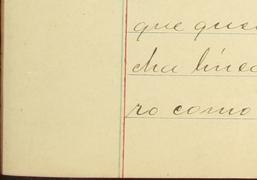 que que
cha línea
ro como